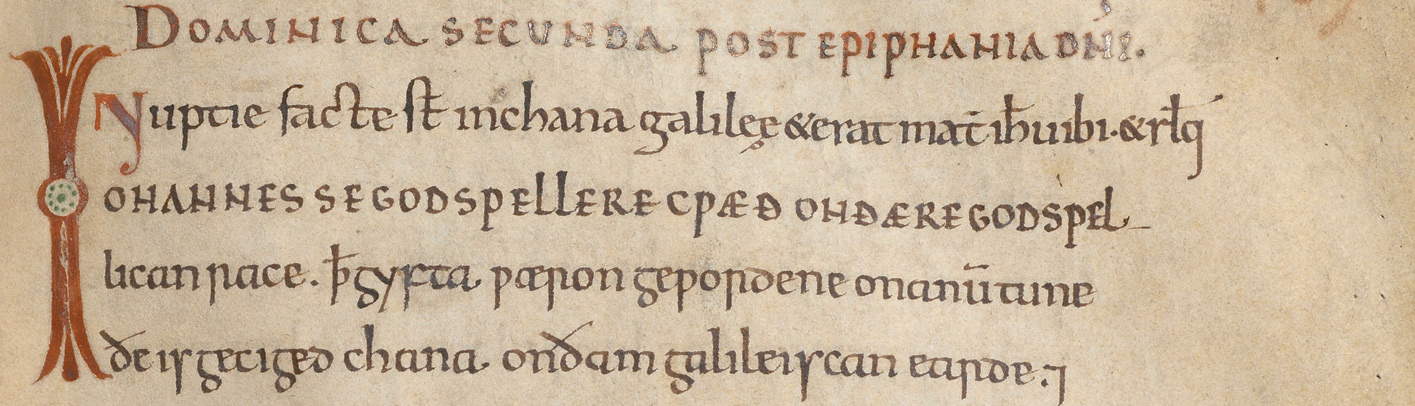 DOMINICA SECUNDA POST EPIPHANIA DNI.
Nuptie facte st̄ inchana galileę &erat mat̄ ih̄u ibi· &rl̄q
IOHANNES SE GODSPELLERE CǷÆÐ ON ÐÆRE GODSPEL-
lican race. ꝥ gyfta ƿæron geƿordene on anū tune
ðe is geciged chana. on ðam galileiscan earde. ⁊